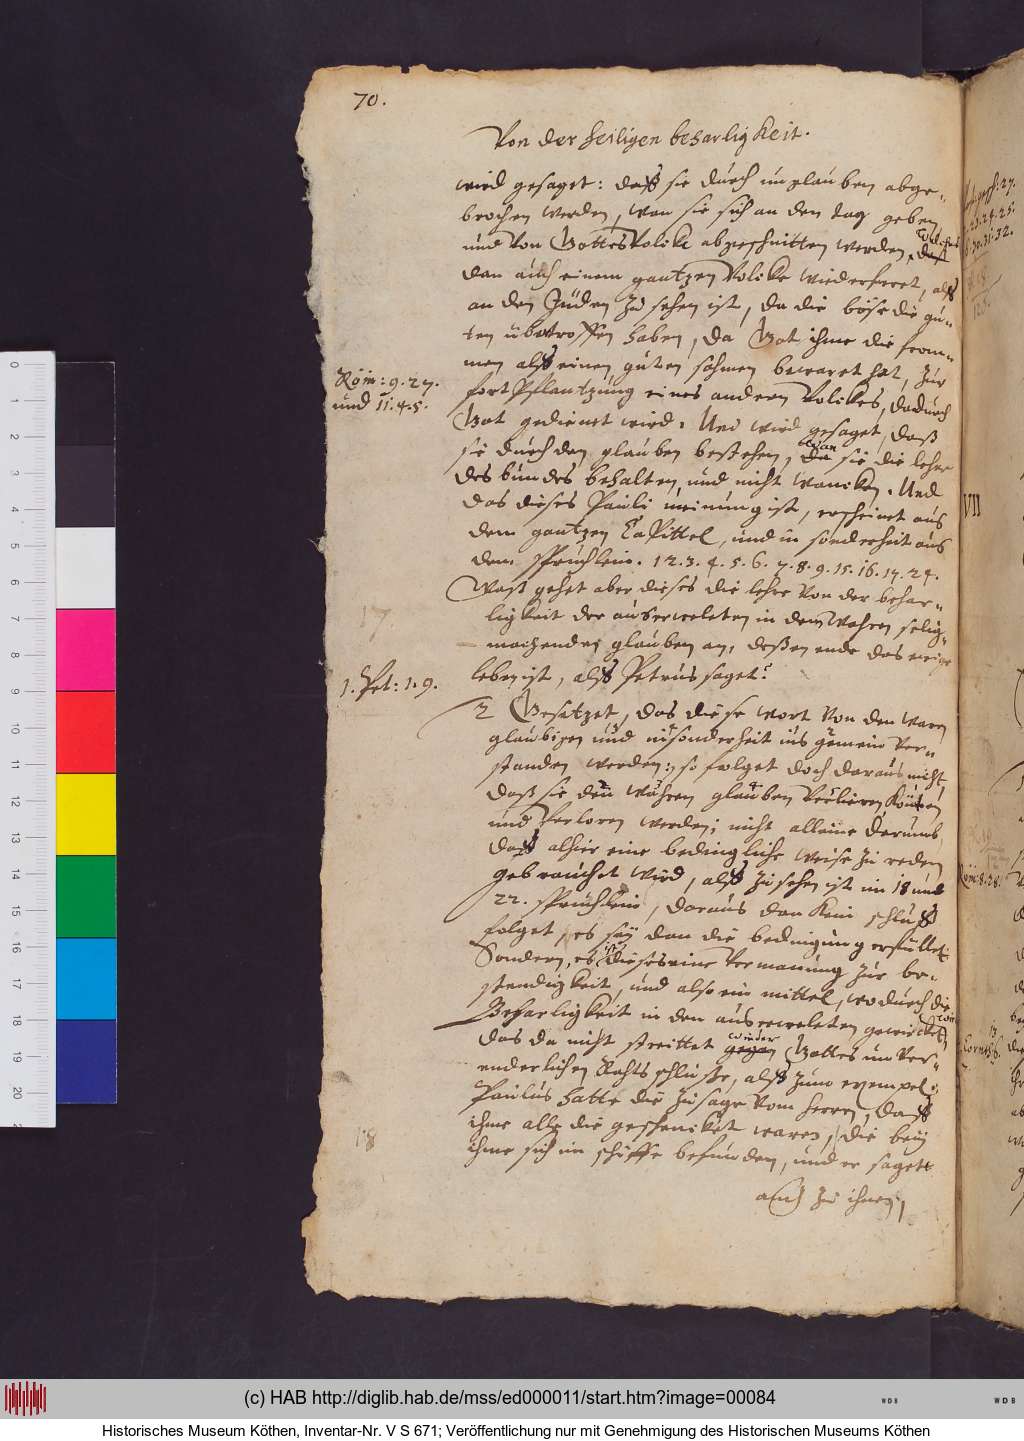 70.
Von der heiligen beharligkeit.
wird gesaget: daß sie durch unglauben abge-
brochen werden, wan sie sich an den tag geben
und von Gottes Volike abgeschnitten werden, welches daß
dan auch einem gantzen Volike wiederferet, alß
an den Jüden zu sehen ist, da die böse die gu-
ten übertroffen haben, da Got ihme die from-
men alß einen guten sahmen bewaret hat, zur
Röm: 9. 27.
und 11. 4. 5.
fortPflantzung eines andern Volikes, dadurch
Got gedienet wird. Und wird gesaget, daß
sie durch den glauben bestehen, wan da sie die lehre
des bundes behalten und nicht wancken. Und
das dieses Pauli meinung ist, erscheinet aus
dem gantzen CaPittel, und in sonderheit aus
dem sprüchlein. 1 2. 3. 4. 5. 6. 7. 8. 9. 15. 16. 17. 24.
Waß gehet aber dieses die lehre von der behar-
17
ligkeit der auserweleten in dem wahren selig-
machenden glauben an, deßen ende das ewige
1. Pet: 1. 9.
leben ist, alß Petrus saget?
2 Gesetzet, das diese wort von den waren
glaubigen und insonderheit ins gemein ver-
standen werden: so folget doch daraus nicht,
daß sie den wahren glauben verlieren können
und verloren werden; nicht alleine darumb,
daß alhier eine bedingliche weise zu reden
gebrauchet wird, alß zu sehen ist im 18 und
22. sprüchlein, daraus dan kein schluß
folget, es seÿ dan die bedingung erfüllet.
Sondern, es ist dieses eine vermanung zur be-
stendigkeit, und also ein mittel, wodurch die
Beharligkeit in den auserweleten gewircket
das da nicht streittet wieder gegen Gottes unver-
enderlichen Rahtsschluße, alß zum exempel:
Paulus hatte die zusage vom herren, daß
ihme alle die geschencket waren, die beÿ
18
ihme sich im schiffe befunden, und er saget
auch zu ihnen,
VII
(c) HAB http://diglib.hab.de/mss/ed000011/start.htm?image=00084
WDB
WDB
Historisches Museum Köthen, Inventar-Nr. V S 671; Veröffentlichung nur mit Genehmigung des Historischen Museums Köthen